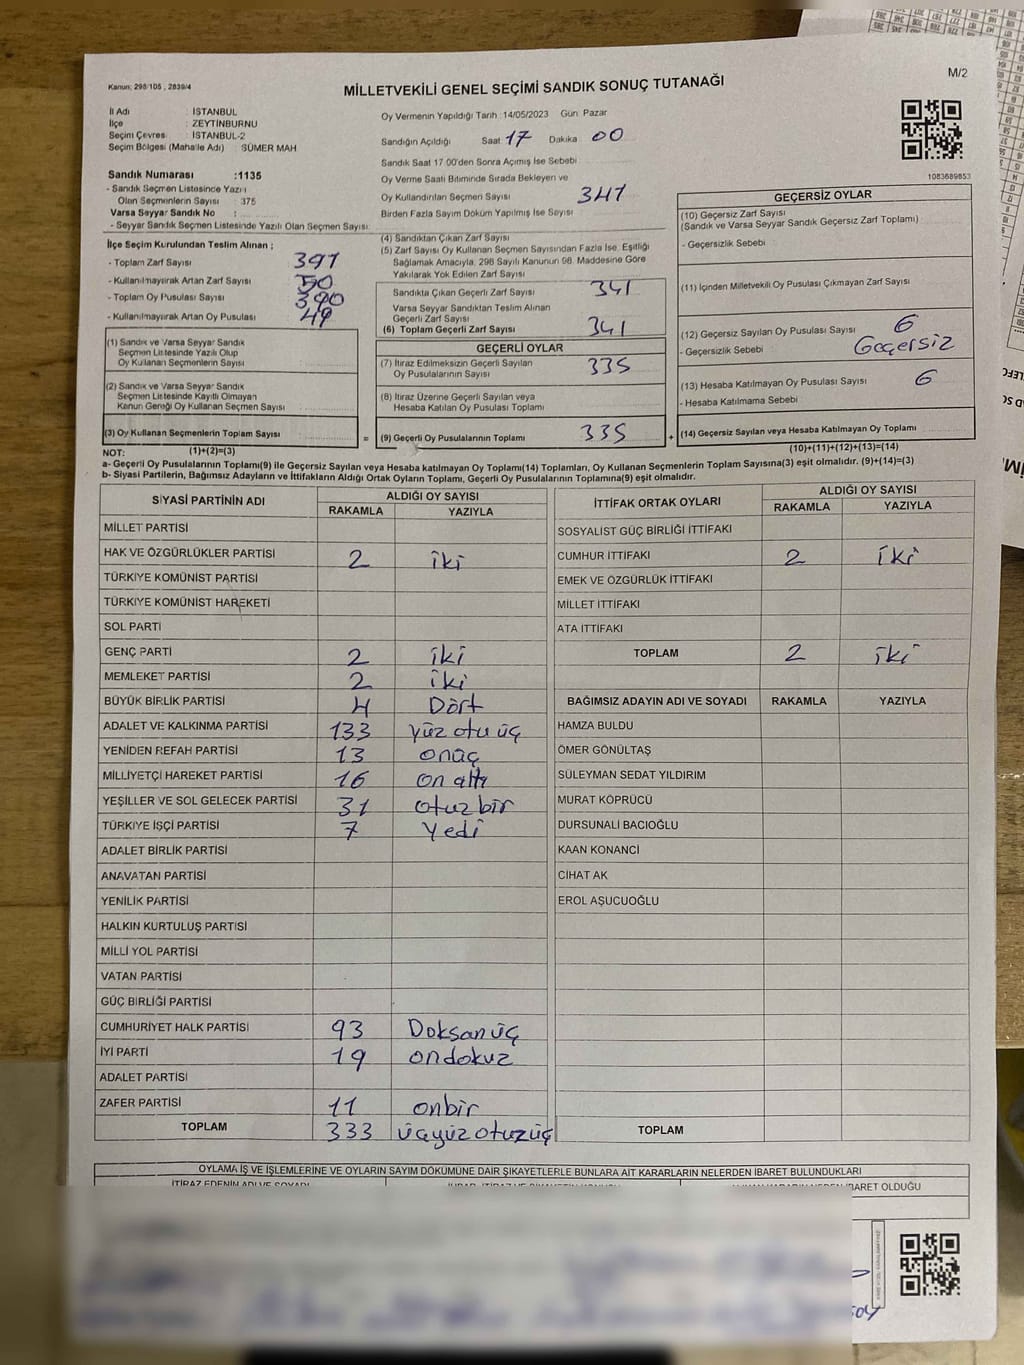 Kanun: 298/105 , 2839/4
MİLLETVEKİLİ GENEL SEÇİMİ SANDIK SONUÇ TUTANAĞI
M/2
İl Adı : İSTANBUL
İlçe : ZEYTİNBURNU
Seçim Çevres : İSTANBUL-2
Seçim Bölgesi (Mahalle Adı) : SÜMER MAH
Sandık Numarası :1135
- Sandık Seçmen Listesinde Yazılı
Olan Seçmenlerin Sayısı : 375
Varsa Seyyar Sandık No :
- Seyyar Sandık Seçmen Listesinde Yazılı Olan Seçmen Sayısı:
İlçe Seçim Kurulundan Teslim Alınan ;
- Toplam Zarf Sayısı 391
- Kullanılmayarak Artan Zarf Sayısı 50
- Toplam Oy Pusulası Sayısı 390
- Kullanılmayarak Artan Oy Pusulası 49
(1) Sandık ve Varsa Seyyar Sandık
Seçmen Listesinde Yazılı Olup
Oy Kullanan Seçmenlerin Sayısı
(2) Sandık ve Varsa Seyyar Sandık
Seçmen Listesinde Kayıtlı Olmayan
Kanun Gereği Oy Kullanan Seçmen Sayısı
(3) Oy Kullanan Seçmenlerin Toplam Sayısı
Oy Vermenin Yapıldığı Tarih :14/05/2023 Gün: Pazar
Sandığın Açıldığı Saat 17 Dakika 00
Sandık Saat 17.00'den Sonra Açılmış İse Sebebi
Oy Verme Saati Bitiminde Sırada Bekleyen ve
Oy Kullandırılan Seçmen Sayısı 341
Birden Fazla Sayım Döküm Yapılmış İse Sayısı
(4) Sandıktan Çıkan Zarf Sayısı
(5) Zarf Sayısı Oy Kullanan Seçmen Sayısından Fazla İse, Eşitliği
Sağlamak Amacıyla, 298 Sayılı Kanunun 98. Maddesine Göre
Yakılarak Yok Edilen Zarf Sayısı
Sandıkta Çıkan Geçerli Zarf Sayısı 341
Varsa Seyyar Sandıktan Teslim Alınan
Geçerli Zarf Sayısı
(6) Toplam Geçerli Zarf Sayısı 341
GEÇERLİ OYLAR
(7) İtiraz Edilmeksizin Geçerli Sayılan
Oy Pusulalarının Sayısı 335
(8) İtiraz Üzerine Geçerli Sayılan veya
Hesaba Katılan Oy Pusulası Toplamı
= (9) Geçerli Oy Pusulalarının Toplamı 335 +
1083689853
GEÇERSİZ OYLAR
(10) Geçersiz Zarf Sayısı
(Sandık ve Varsa Seyyar Sandık Geçersiz Zarf Toplamı)
- Geçersizlik Sebebi
(11) İçinden Milletvekili Oy Pusulası Çıkmayan Zarf Sayısı
(12) Geçersiz Sayılan Oy Pusulası Sayısı 6
- Geçersizlik Sebebi Geçersiz
(13) Hesaba Katılmayan Oy Pusulası Sayısı 6
- Hesaba Katılmama Sebebi
(14) Geçersiz Sayılan veya Hesaba Katılmayan Oy Toplamı
NOT: (1)+(2)=(3) (10)+(11)+(12)+(13)=(14)
a- Geçerli Oy Pusulalarının Toplamı(9) ile Geçersiz Sayılan veya Hesaba katılmayan Oy Toplamı(14) Toplamları, Oy Kullanan Seçmenlerin Toplam Sayısına(3) eşit olmalıdır. (9)+(14)=(3)
b- Siyasi Partilerin, Bağımsız Adayların ve İttifakların Aldığı Ortak Oyların Toplamı, Geçerli Oy Pusulalarının Toplamına(9) eşit olmalıdır.
SİYASİ PARTİNİN ADI ALDIĞI OY SAYISI
RAKAMLA YAZIYLA
MİLLET PARTİSİ
HAK VE ÖZGÜRLÜKLER PARTİSİ 2 iki
TÜRKİYE KOMÜNİST PARTİSİ
TÜRKİYE KOMÜNİST HAREKETİ
SOL PARTİ
GENÇ PARTİ 2 iki
MEMLEKET PARTİSİ 2 iki
BÜYÜK BİRLİK PARTİSİ 4 Dört
ADALET VE KALKINMA PARTİSİ 133 yüz otu üç
YENİDEN REFAH PARTİSİ 13 onüç
MİLLİYETÇİ HAREKET PARTİSİ 16 on altı
YEŞİLLER VE SOL GELECEK PARTİSİ 31 otuz bir
TÜRKİYE İŞÇİ PARTİSİ 7 Yedi
ADALET BİRLİK PARTİSİ
ANAVATAN PARTİSİ
YENİLİK PARTİSİ
HALKIN KURTULUŞ PARTİSİ
MİLLİ YOL PARTİSİ
VATAN PARTİSİ
GÜÇ BİRLİĞİ PARTİSİ
CUMHURİYET HALK PARTİSİ 93 Doksan üç
İYİ PARTİ 19 ondokuz
ADALET PARTİSİ
ZAFER PARTİSİ 11 onbir
TOPLAM 333 üçyüz otuzüç
İTTİFAK ORTAK OYLARI ALDIĞI OY SAYISI
RAKAMLA YAZIYLA
SOSYALİST GÜÇ BİRLİĞİ İTTİFAKI
CUMHUR İTTİFAKI 2 iki
EMEK VE ÖZGÜRLÜK İTTİFAKI
MİLLET İTTİFAKI
ATA İTTİFAKI
TOPLAM 2 iki
BAĞIMSIZ ADAYIN ADI VE SOYADI RAKAMLA YAZIYLA
HAMZA BULDU
ÖMER GÖNÜLTAŞ
SÜLEYMAN SEDAT YILDIRIM
MURAT KÖPRÜCÜ
DURSUNALİ BACIOĞLU
KAAN KONANCİ
CİHAT AK
EROL AŞUCUOĞLU
TOPLAM
OYLAMA İŞ VE İŞLEMLERİNE VE OYLARIN SAYIM DÖKÜMÜNE DAİR ŞİKAYETLERLE BUNLARA AİT KARARLARIN NELERDEN İBARET BULUNDUKLARI
İTİRAZ EDENİN ADI VE SOYADI
İBARET OLDUĞU